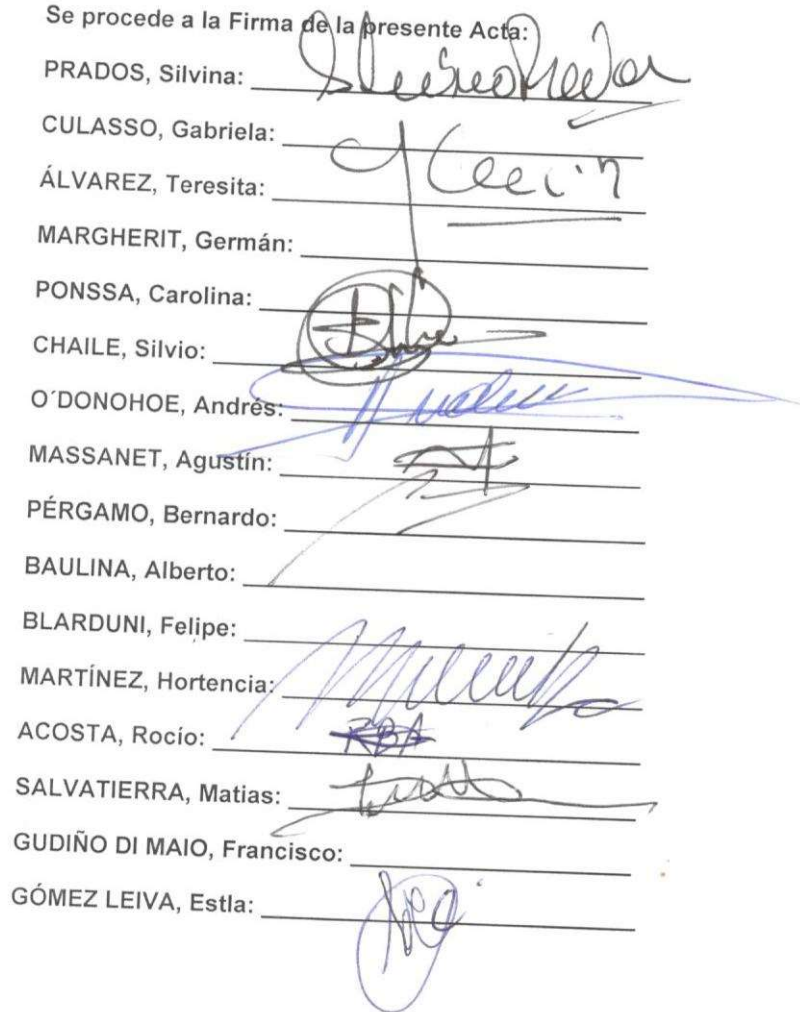 Se procede a la Firma de la presente Acta:
PRADOS, Silvina:
CULASSO, Gabriela:
ÁLVAREZ, Teresita:
MARGHERIT, Germán:
PONSSA, Carolina:
CHAILE, Silvio:
O´DONOHOE, Andrés:
MASSANET, Agustín:
PÉRGAMO, Bernardo:
BAULINA, Alberto:
BLARDUNI, Felipe:
MARTÍNEZ, Hortencia:
ACOSTA, Rocío: RBA
SALVATIERRA, Matias:
GUDIÑO DI MAIO, Francisco:
GÓMEZ LEIVA, Estla: